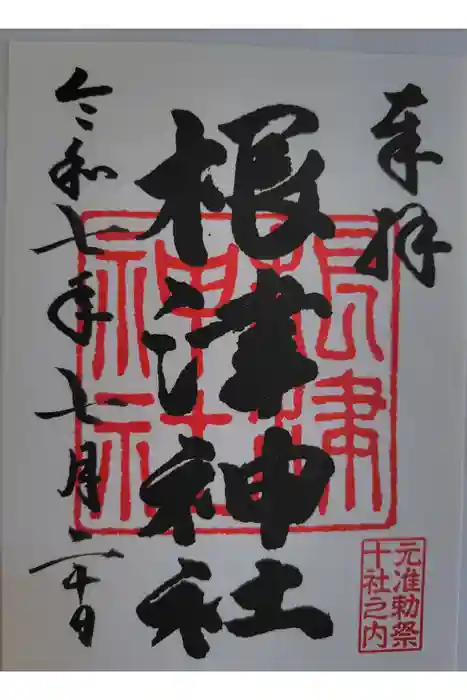 奉拝
根津神社
令和七年七月二十日
根津
神社
元准勅祭
十社之内